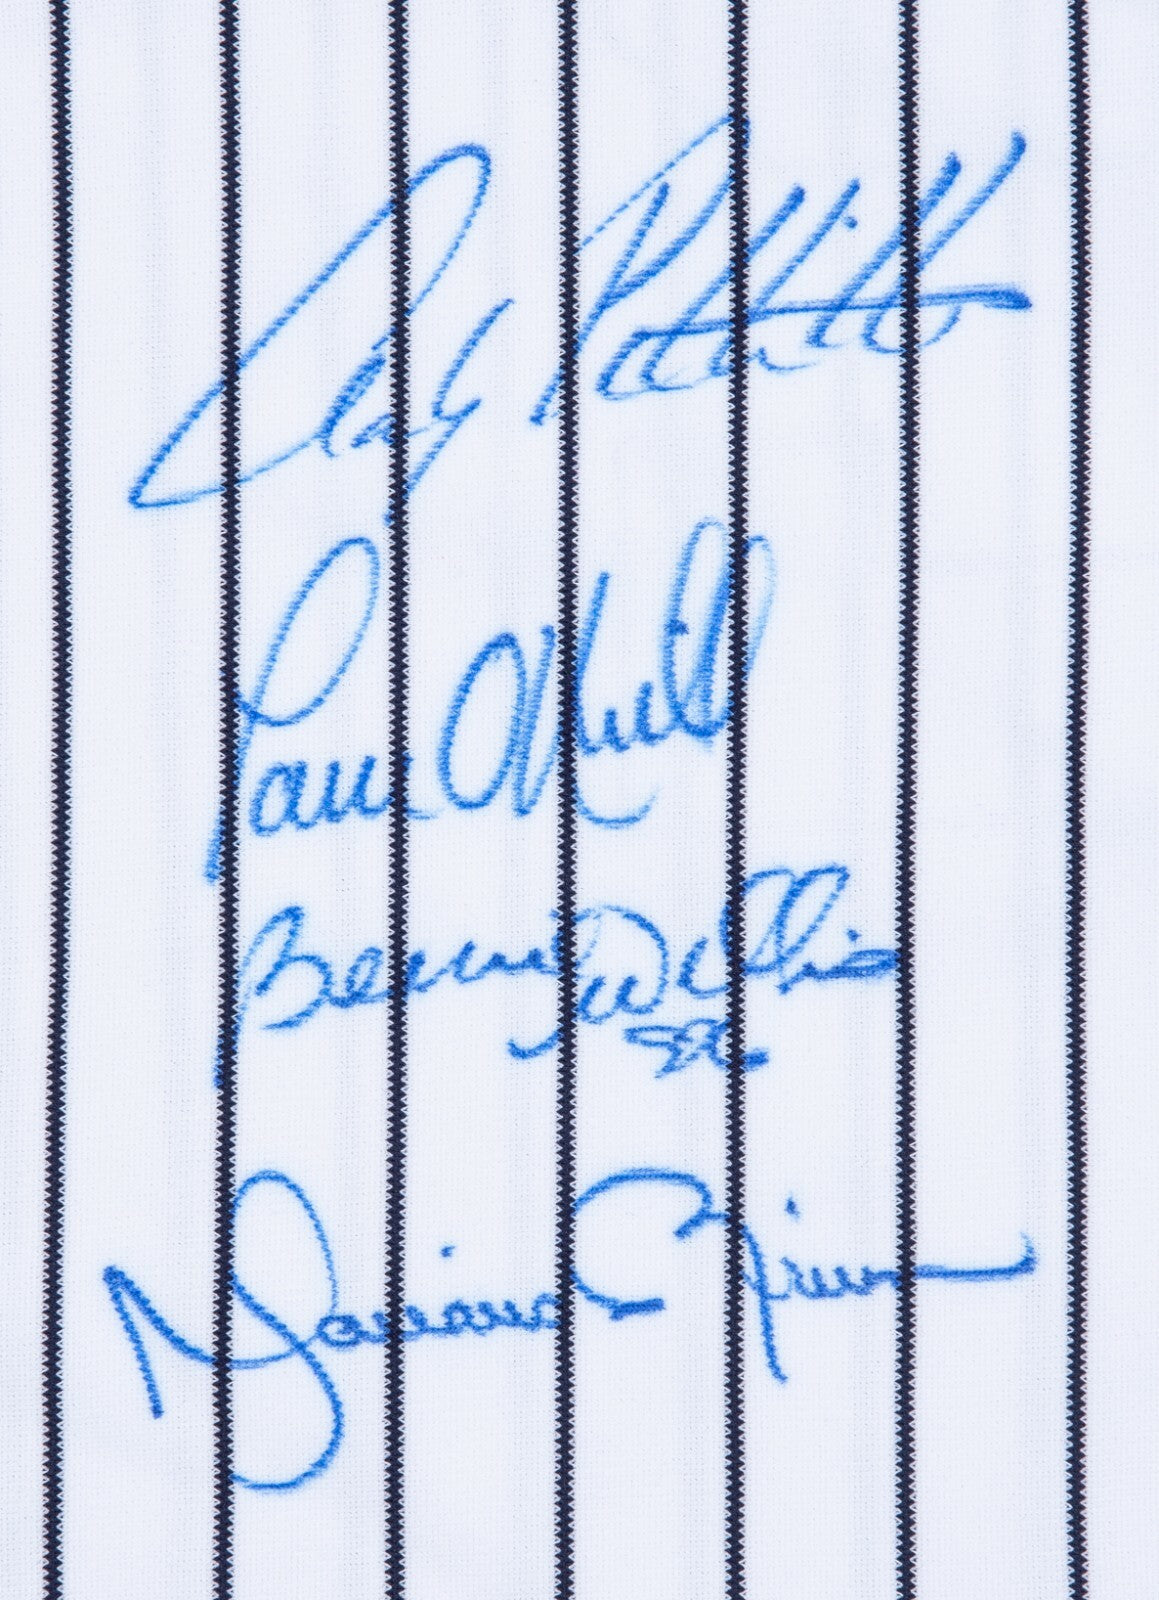 Andy Pettitte
Paul O'Neill
Bernie Williams
Mariano Rivera